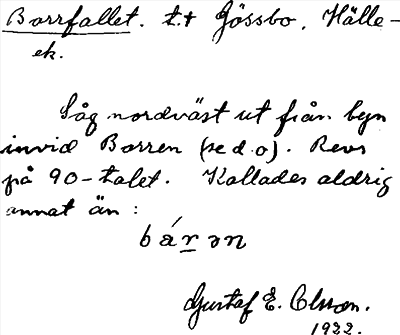 Borrfallet. t.t Jössbo. Hälle-
ek.
Låg nordväst ut från byn
invid Borren (se d.o). Revs
på 90-talet. Kallades aldrig
annat än:
bárən
Gustaf E. Olsson.
1922.